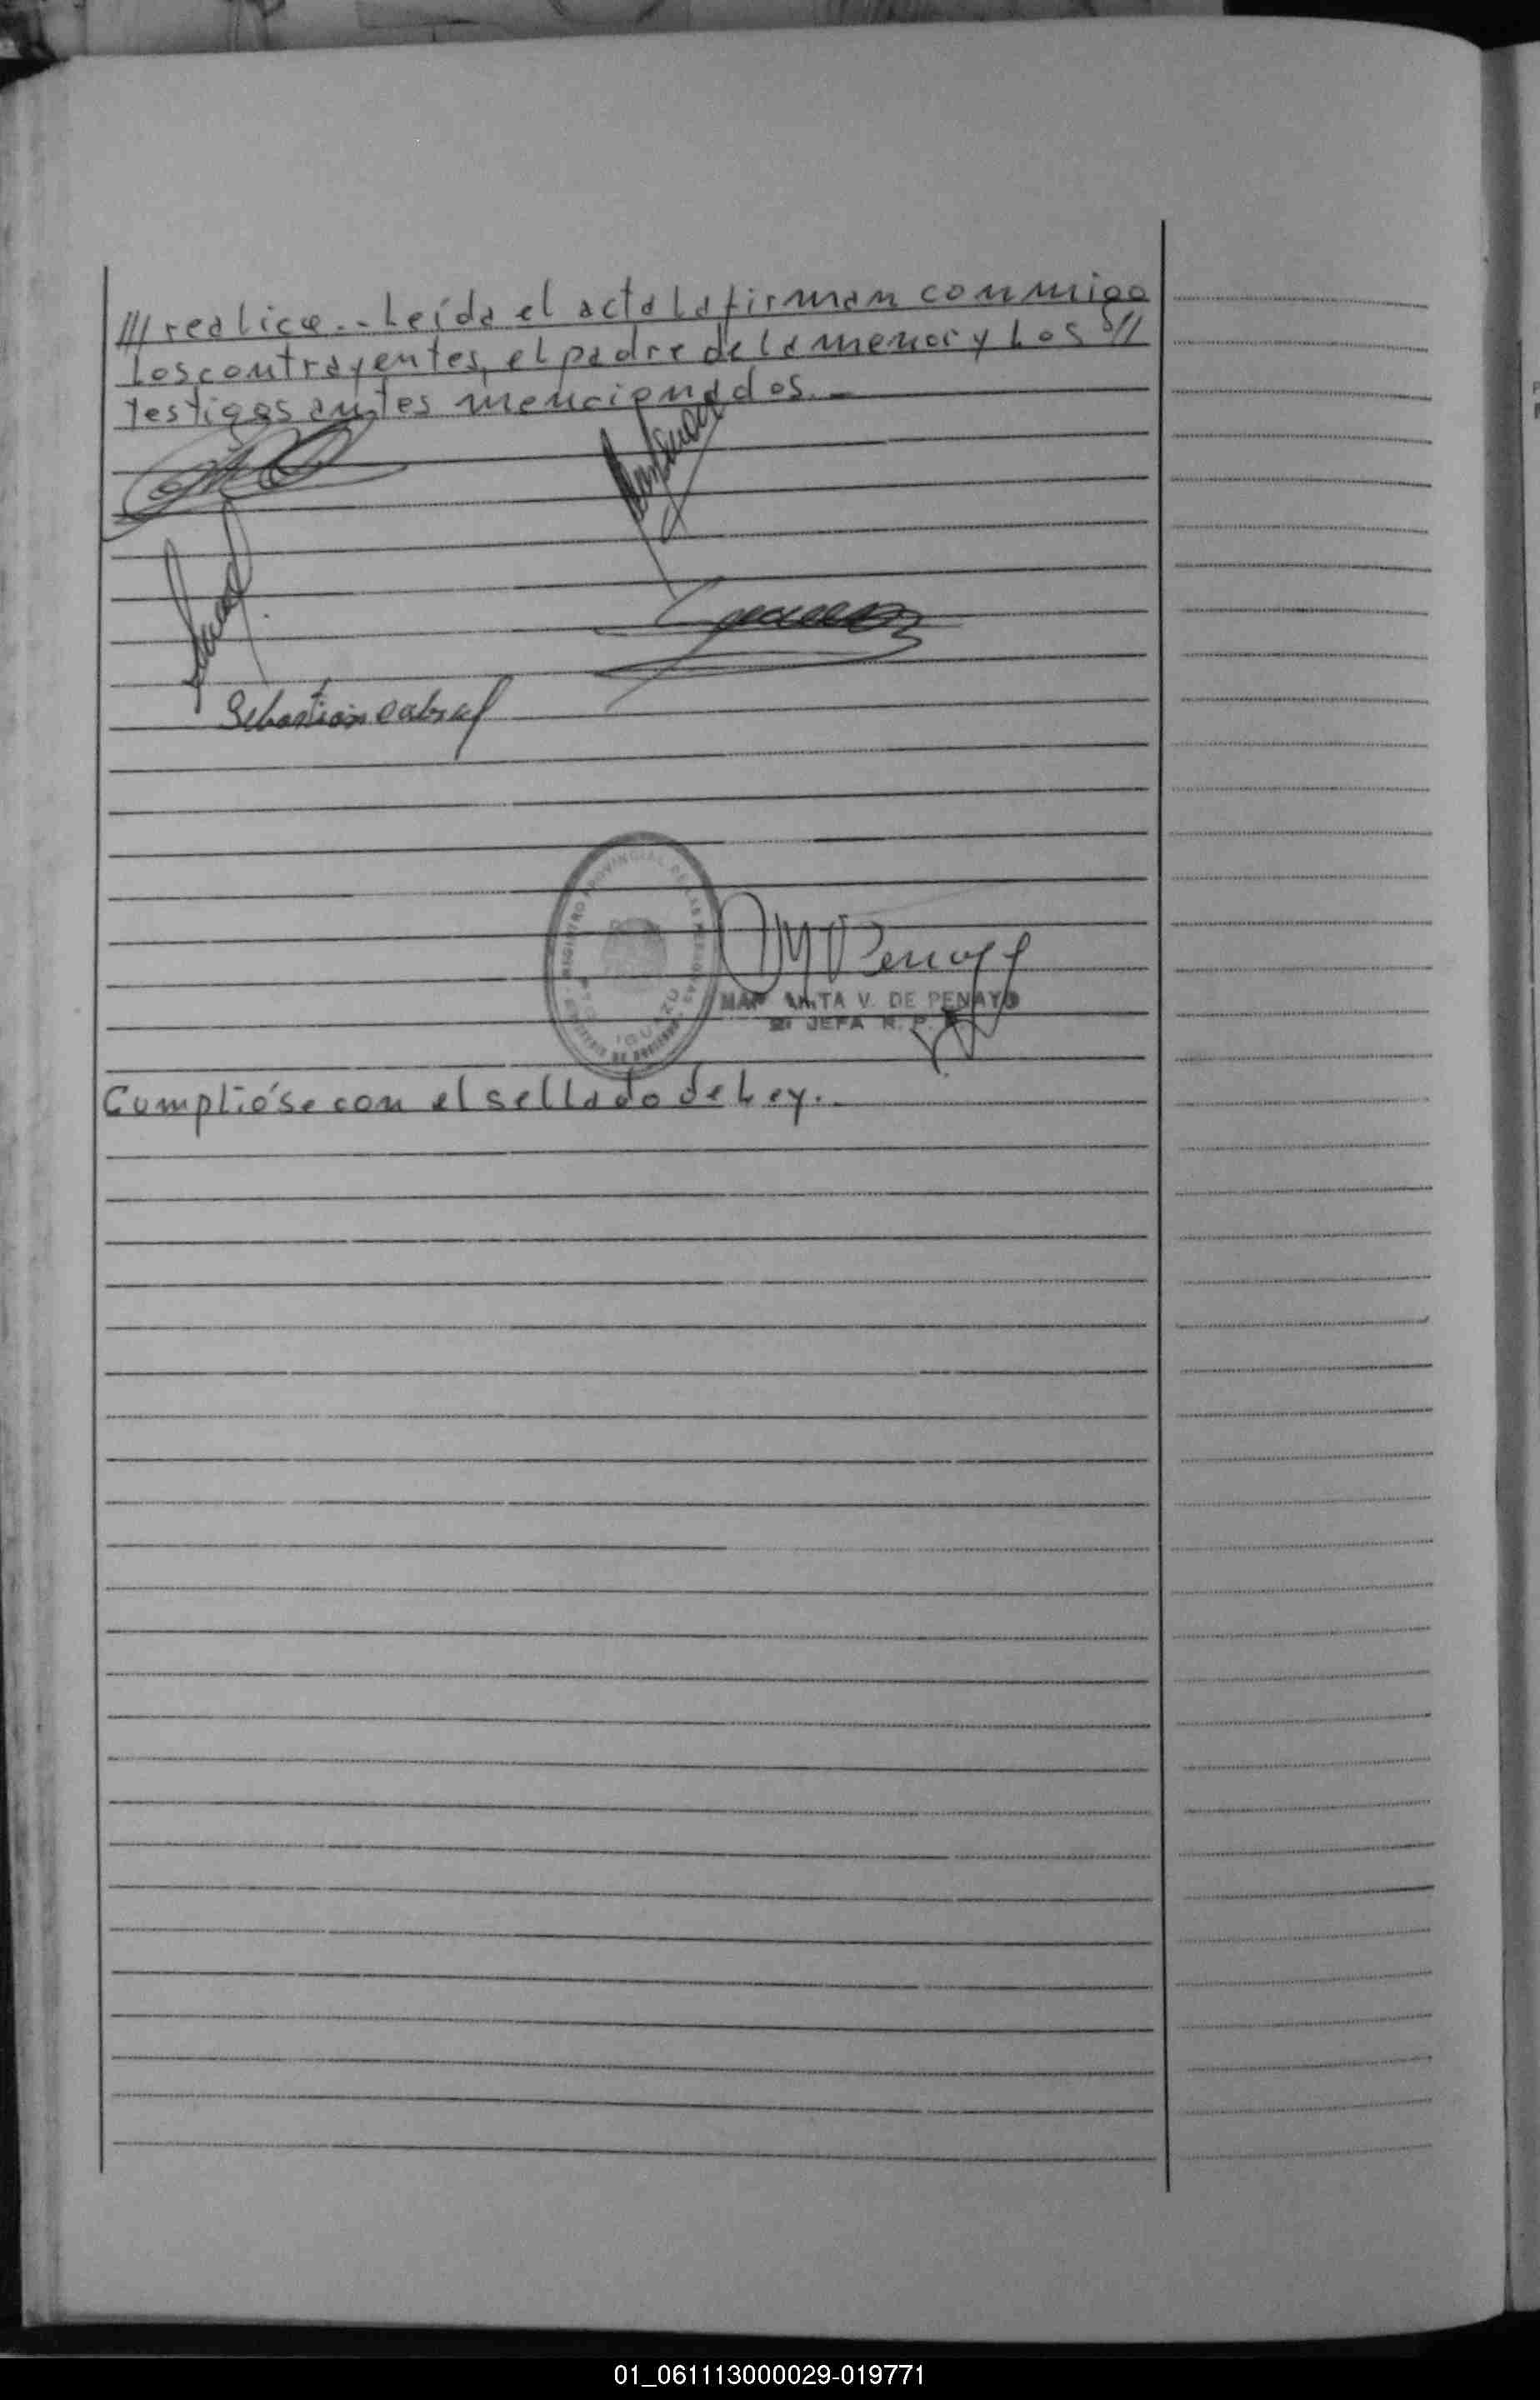 /// realice.- Leída el acta la firman conmigo
los contrayentes, el padre de la menor y los //
testigos antes mencionados.-
Sebastián Cabral
REGISTRO PROVINCIAL DE LAS PERSONAS
IGUAZU
MAR ANITA V. DE PENAYO
JEFA R. P.
Cumplióse con el sellado de Ley.-
01_061113000029-019771